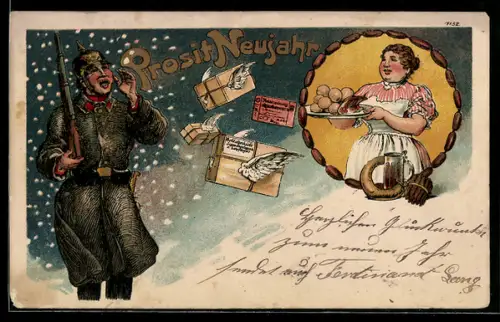 7152.
Prosit Neujahr
Herzlichen Glückwunsch
zum neuen Jahr
sendet auch Ferdinand Lang